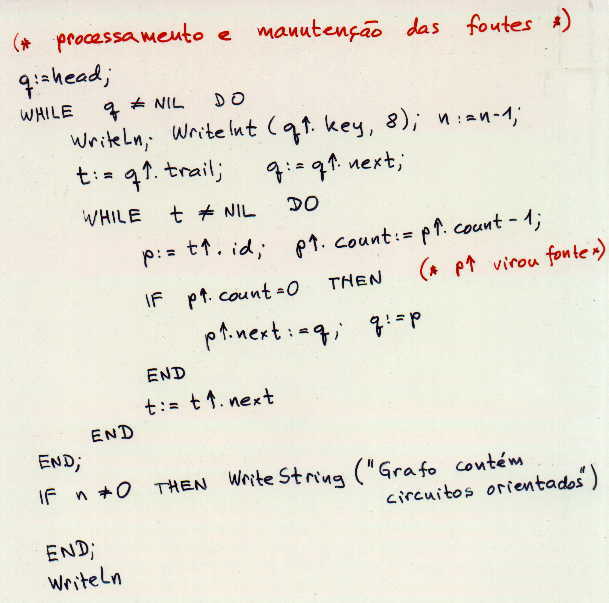 (* processamento e manutenção das fontes *)
q:=head;
WHILE q ≠ NIL DO
WriteLn; WriteInt (q↑. key, 8); n:=n-1;
t:= q↑. trail; q:= q↑. next;
WHILE t ≠ NIL DO
p:= t↑. id; p↑. count:= p↑. count - 1;
IF p↑. count=0 THEN (* p↑ virou fonte *)
p↑.next:=q; q:=p
END
t:= t↑. next
END
END;
IF n ≠ 0 THEN WriteString ("Grafo contém
circuitos orientados")
END;
WriteLn